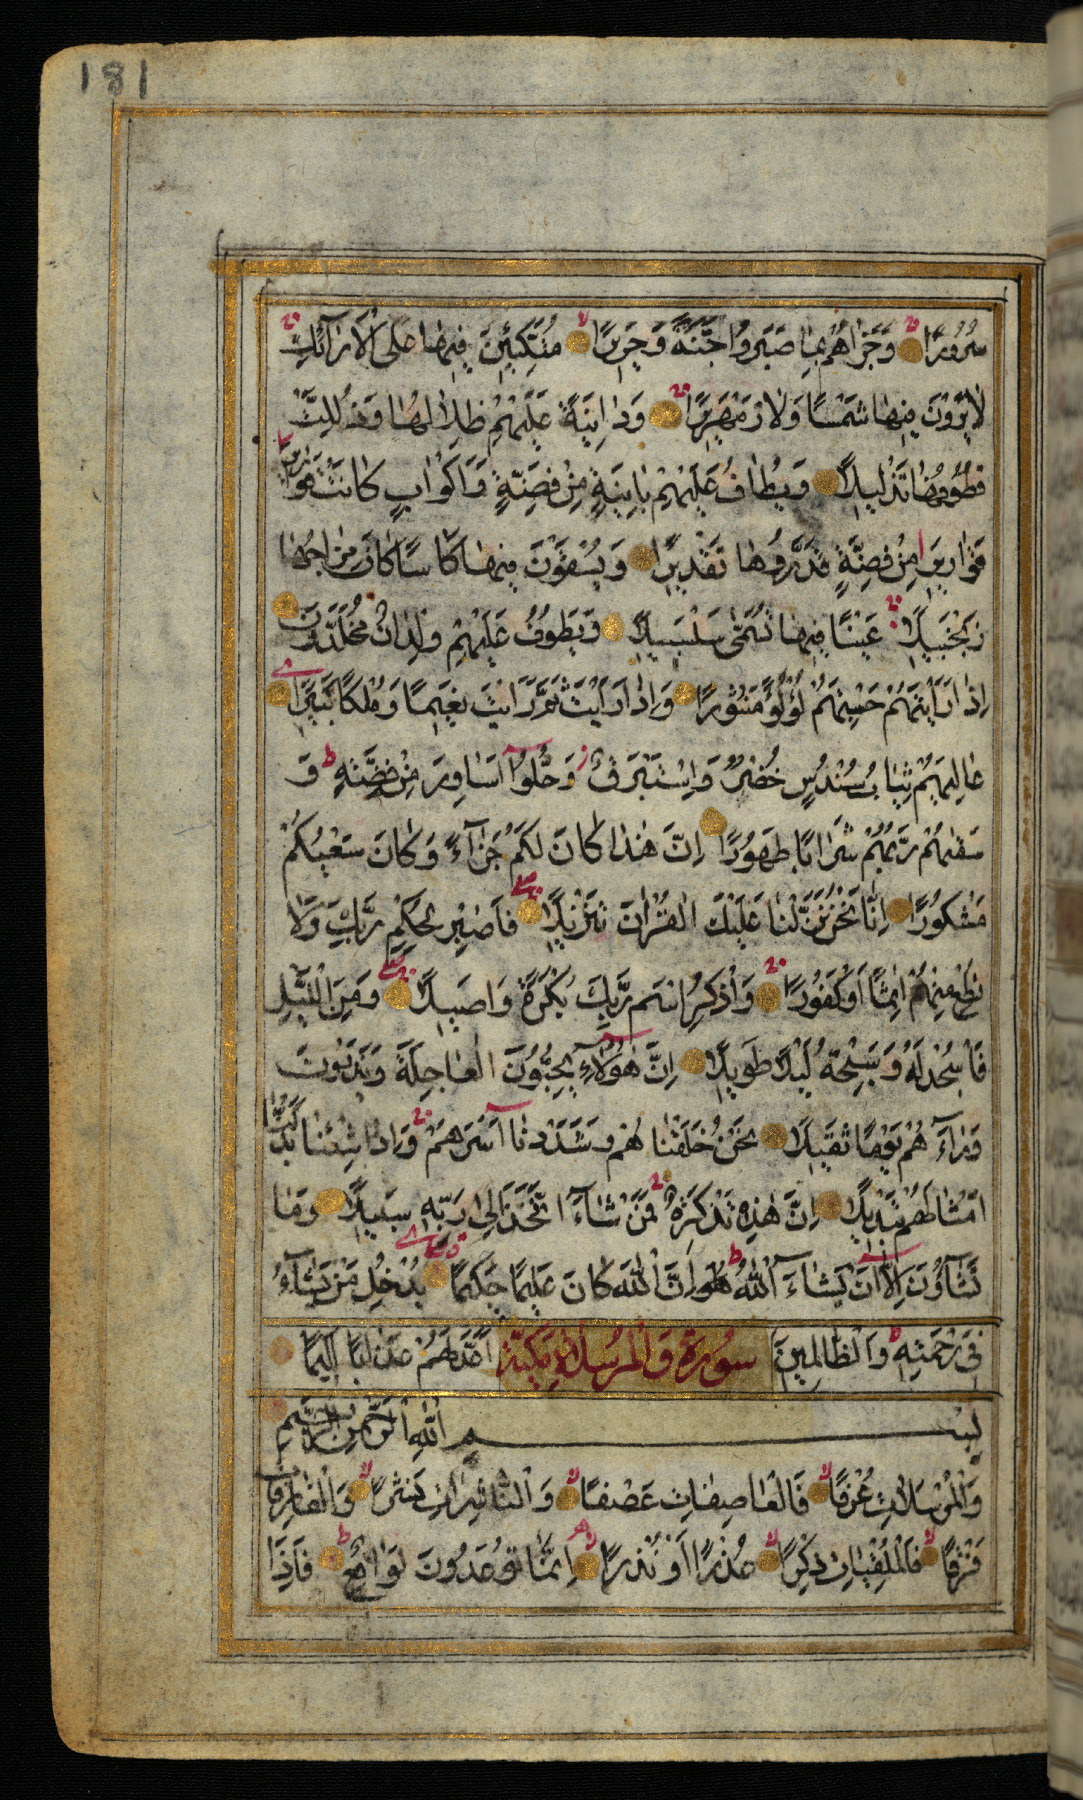 181
سُرُورًا وَجَزَاهُمْ بِمَا صَبَرُوا جَنَّةً وَحَرِيرًا مُتَّكِئِينَ فِيهَا عَلَى الْأَرَآئِكِ
لَا يَرَوْنَ فِيهَا شَمْسًا وَلَا زَمْهَرِيرًا وَدَانِيَةً عَلَيْهِمْ ظِلَالُهَا وَذُلِّلَتْ
قُطُوفُهَا تَذْلِيلًا وَيُطَافُ عَلَيْهِمْ بِآنِيَةٍ مِنْ فِضَّةٍ وَأَكْوَابٍ كَانَتْ قَوَارِيرَا
قَوَارِيرَا مِنْ فِضَّةٍ قَدَّرُوهَا تَقْدِيرًا وَيُسْقَوْنَ فِيهَا كَأْسًا كَانَ مِزَاجُهَا
زَنْجَبِيلًا عَيْنًا فِيهَا تُسَمَّى سَلْسَبِيلًا وَيَطُوفُ عَلَيْهِمْ وِلْدَانٌ مُخَلَّدُونَ
إِذَا رَأَيْتَهُمْ حَسِبْتَهُمْ لُؤْلُؤًا مَنْثُورًا وَإِذَا رَأَيْتَ ثَمَّ رَأَيْتَ نَعِيمًا وَمُلْكًا كَبِيرًا
عَالِيَهُمْ ثِيَابُ سُنْدُسٍ خُضْرٌ وَإِسْتَبْرَقٌ وَحُلُّوٓا أَسَاوِرَ مِنْ فِضَّةٍ وَ
سَقٰهُمْ رَبُّهُمْ شَرَابًا طَهُورًا إِنَّ هٰذَا كَانَ لَكُمْ جَزَآءً وَكَانَ سَعْيُكُمْ
مَشْكُورًا إِنَّا نَحْنُ نَزَّلْنَا عَلَيْكَ الْقُرْاٰنَ تَنْزِيلًا فَاصْبِرْ لِحُكْمِ رَبِّكَ وَلَا
تُطِعْ مِنْهُمْ اٰثِمًا أَوْ كَفُورًا وَاذْكُرِ اسْمَ رَبِّكَ بُكْرَةً وَأَصِيلًا وَمِنَ الَّيْلِ
فَاسْجُدْ لَهُ وَسَبِّحْهُ لَيْلًا طَوِيلًا إِنَّ هٰؤُلَآءِ يُحِبُّونَ الْعَاجِلَةَ وَيَذَرُونَ
وَرَآءَهُمْ يَوْمًا ثَقِيلًا نَحْنُ خَلَقْنَاهُمْ وَشَدَدْنَآ أَسْرَهُمْ وَإِذَا شِئْنَا بَدَّلْنَآ
أَمْثَالَهُمْ تَبْدِيلًا إِنَّ هٰذِهِ تَذْكِرَةٌ فَمَنْ شَآءَ اتَّخَذَ إِلَى رَبِّهِ سَبِيلًا وَمَا
تَشَآؤُنَ إِلَّآ أَنْ يَشَآءَ اللّٰهُ إِنَّ اللّٰهَ كَانَ عَلِيمًا حَكِيمًا يُدْخِلُ مَنْ يَشَآءُ
فِي رَحْمَتِهِ وَالظَّالِمِينَ أَعَدَّ لَهُمْ عَذَابًا أَلِيمًا
سُورَة وَالْمُرْسَلَاتِ مَكِّيَّة
بِسْمِ اللّٰهِ الرَّحْمٰنِ الرَّحِيمِ
وَالْمُرْسَلَاتِ عُرْفًا فَالْعَاصِفَاتِ عَصْفًا وَالنَّاشِرَاتِ نَشْرًا فَالْفَارِقَاتِ
فَرْقًا فَالْمُلْقِيَاتِ ذِكْرًا عُذْرًا أَوْ نُذْرًا إِنَّمَا تُوعَدُونَ لَوَاقِعٌ فَإِذَا